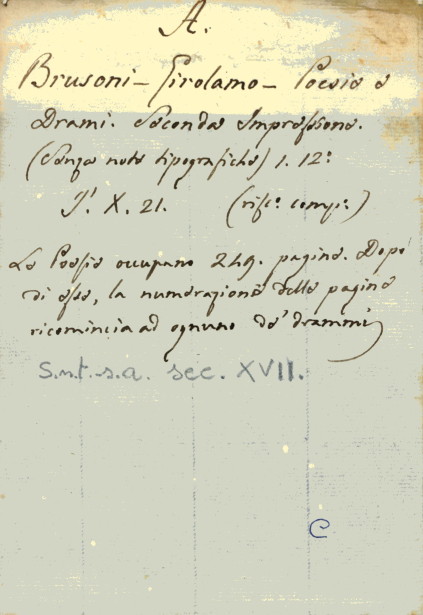 A.
Brusoni - Girolamo - Poesie e
Drami. Seconda Impressione.
(Senza note tipografiche) 1. 12°
I'. X. 21. (risc.° comp.°)
Le Poesie occupano 249. pagine. Dopo
di esse, la numerazione delle pagine
ricomincia ad ognuno de' drammi
S.n.t.-s.a. sec. XVII.
C